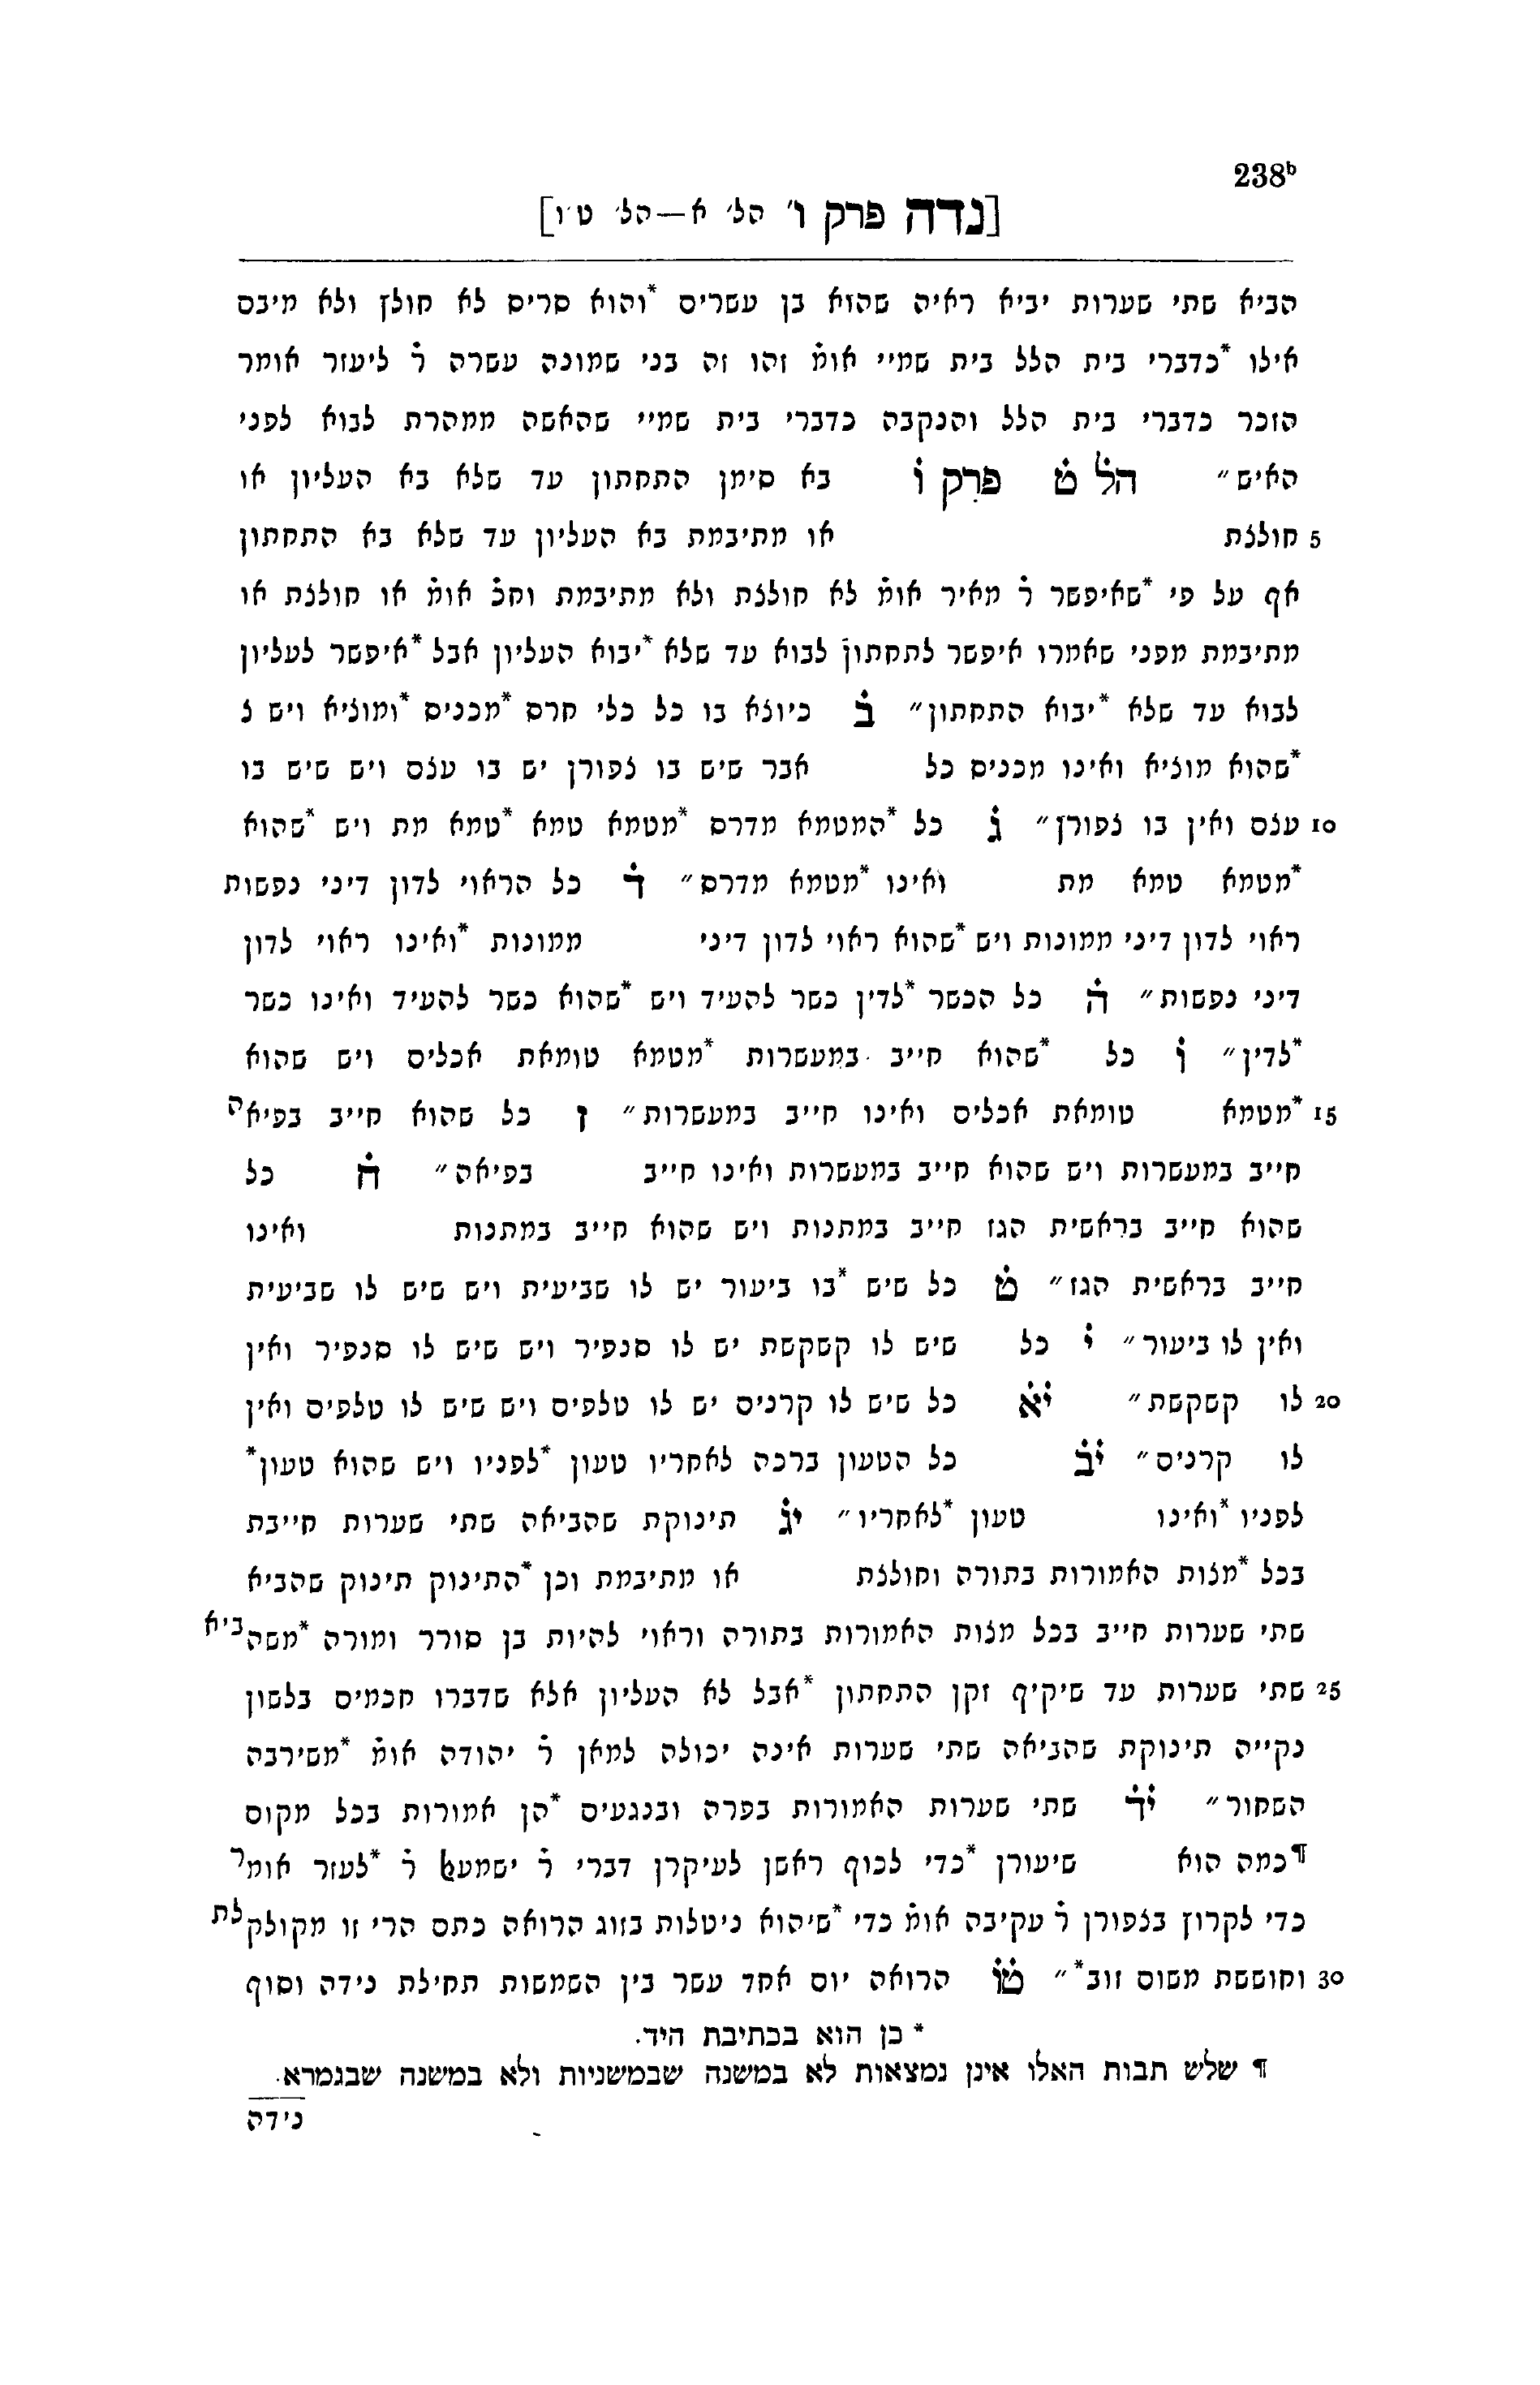 238ᵇ
[נדה פרק ו' הל' א—הל' ט'ו]
הביא שתי שערות יביא ראיה שהוא בן עשרים *והוא סריס לא חולץ ולא מיבם
אילו *כדברי בית הלל בית שמיי אומ̇ זהו זה בני שמונה עשרה ר̇ ליעזר אומר
הזכר כדברי בית הלל והנקבה כדברי בית שמיי שהאשה ממהרת לבוא לפני
האיש״ הל̇ ט̇ פרק ו̇ בא סימן התחתון עד שלא בא העליון או
5 חולצת או מתיבמת בא העליון עד שלא בא התחתון
אף על פי *שאיפשר ר̇ מאיר אומ̇ לא חולצת ולא מתיבמת וחכ̇ אומ̇ או חולצת או
מתיבמת מפני שאמרו איפשר לתחתון לבוא עד שלא *יבוא העליון אבל *איפשר לעליון
לבוא עד שלא *יבוא התחתון״ ב̇ כיוצא בו כל כלי חרס *מכניס *ומוציא ויש צ
*שהוא מוציא ואינו מכניס כל אבר שיש בו צפורן יש בו עצם ויש שיש בו
10 עצם ואין בו צפורן״ ג̇ כל *המטמא מדרס *מטמא טמא *טמא מת ויש *שהוא
*מטמא טמא מת ואינו *מטמא מדרס״ ד̇ כל הראוי לדון דיני נפשות
ראוי לדון דיני ממונות ויש *שהוא ראוי לדון דיני ממונות *ואינו ראוי לדון
דיני נפשות״ ה̇ כל הכשר *לדין כשר להעיד ויש *שהוא כשר להעיד ואינו כשר
*לדין״ ו̇ כל *שהוא חייב במעשרות *מטמא טומאת אכלים ויש שהוא
15 *מטמא טומאת אכלים ואינו חייב במעשרות״ ז כל שהוא חייב בפיאה
חייב במעשרות ויש שהוא חייב במעשרות ואינו חייב בפיאה״ ח̇ כל
שהוא חייב בראשית הגז חייב במתנות ויש שהוא חייב במתנות ואינו
חייב בראשית הגז״ ט̇ כל שיש *בו ביעור יש לו שביעית ויש שיש לו שביעית
ואין לו ביעור״ י̇ כל שיש לו קשקשת יש לו סנפיר ויש שיש לו סנפיר ואין
20 לו קשקשת״ י̇א̇ כל שיש לו קרנים יש לו טלפים ויש שיש לו טלפים ואין
לו קרנים״ י̇ב̇ כל הטעון ברכה לאחריו טעון *לפניו ויש שהוא טעון*
לפניו *ואינו טעון *לאחריו״ י̇ג̇ תינוקת שהביאה שתי שערות חייבת
בכל *מצות האמורות בתורה וחולצת או מתיבמת וכן *התינוק תינוק שהביא
שתי שערות חייב בכל מצות האמורות בתורה וראוי להיות בן סורר ומורה *משהביא
25 שתי שערות עד שיקיף זקן התחתון *אבל לא העליון אלא שדברו חכמים בלשון
נקייה תינוקת שהביאה שתי שערות אינה יכולה למאן ר̇ יהודה אומ̇ *משירבה
השחור״ י̇ד̇ שתי שערות האמורות בפרה ובנגעים *הן אמורות בכל מקום
¶כמה הוא שיעורן *כדי לכוף ראשן לעיקרן דברי ר̇ ישמעאל ר̇ *לעזר אומר
כדי לקרוץ בצפורן ר̇ עקיבה אומ̇ כדי *שיהוא ניטלות בזוג הרואה כתם הרי זו מקולקלת
30 וחוששת משום זוב*״ ט̇ו̇ הרואה יום אחד עשר בין השמשות תחילת נידה וסוף
* כן הוא בכתיבת היד.
¶ שלש תבות האלו אינן נמצאות לא במשנה שבמשניות ולא במשנה שבגמרא.
נידה